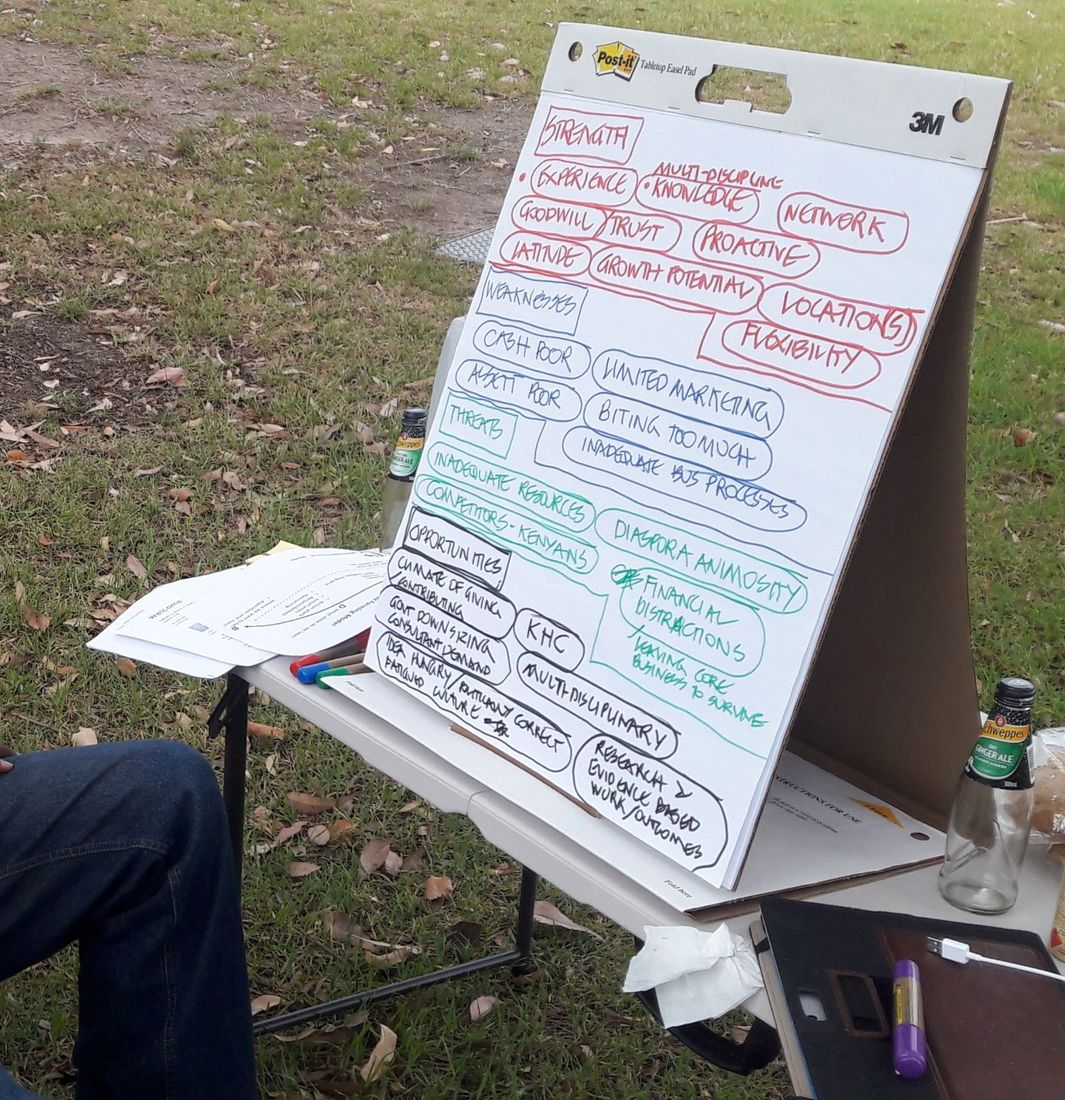 Post-it Tabletop Easel Pad
3M
STRENGTH
MULTI-DISCIPLINE
• EXPERIENCE • KNOWLEDGE NETWORK
GOODWILL / TRUST PROACTIVE
LATITUDE GROWTH POTENTIAL LOCATION(S)
FLEXIBILITY
WEAKNESSES
CASH POOR LIMITED MARKETING
ASSETT POOR BITING TOO MUCH
INADEQUATE BUS PROCESSES
THREATS
INADEQUATE RESOURCES DIASPORA ANIMOSITY
COMPETITORS - KENYANS
FINANCIAL
DISTRACTIONS
/LEAVING CORE
BUSINESS TO SURVIVE
OPPORTUNITIES
CLIMATE OF GIVING
CONTRIBUTING
GOVT DOWNSIZING
CONSULTANT DEMAND
IDEA HUNGRY/POLITICALLY CORRECT
FATIGUED CULTURE
KHC
MULTIDISCIPLINARY
RESEARCH &
EVIDENCE BASED
WORK/OUTCOMES
Fold here
Fold here
STRUCTIONS FOR USE
Schweppes
DRY
GINGER ALE
300ml
chweppes
GINGER ALE